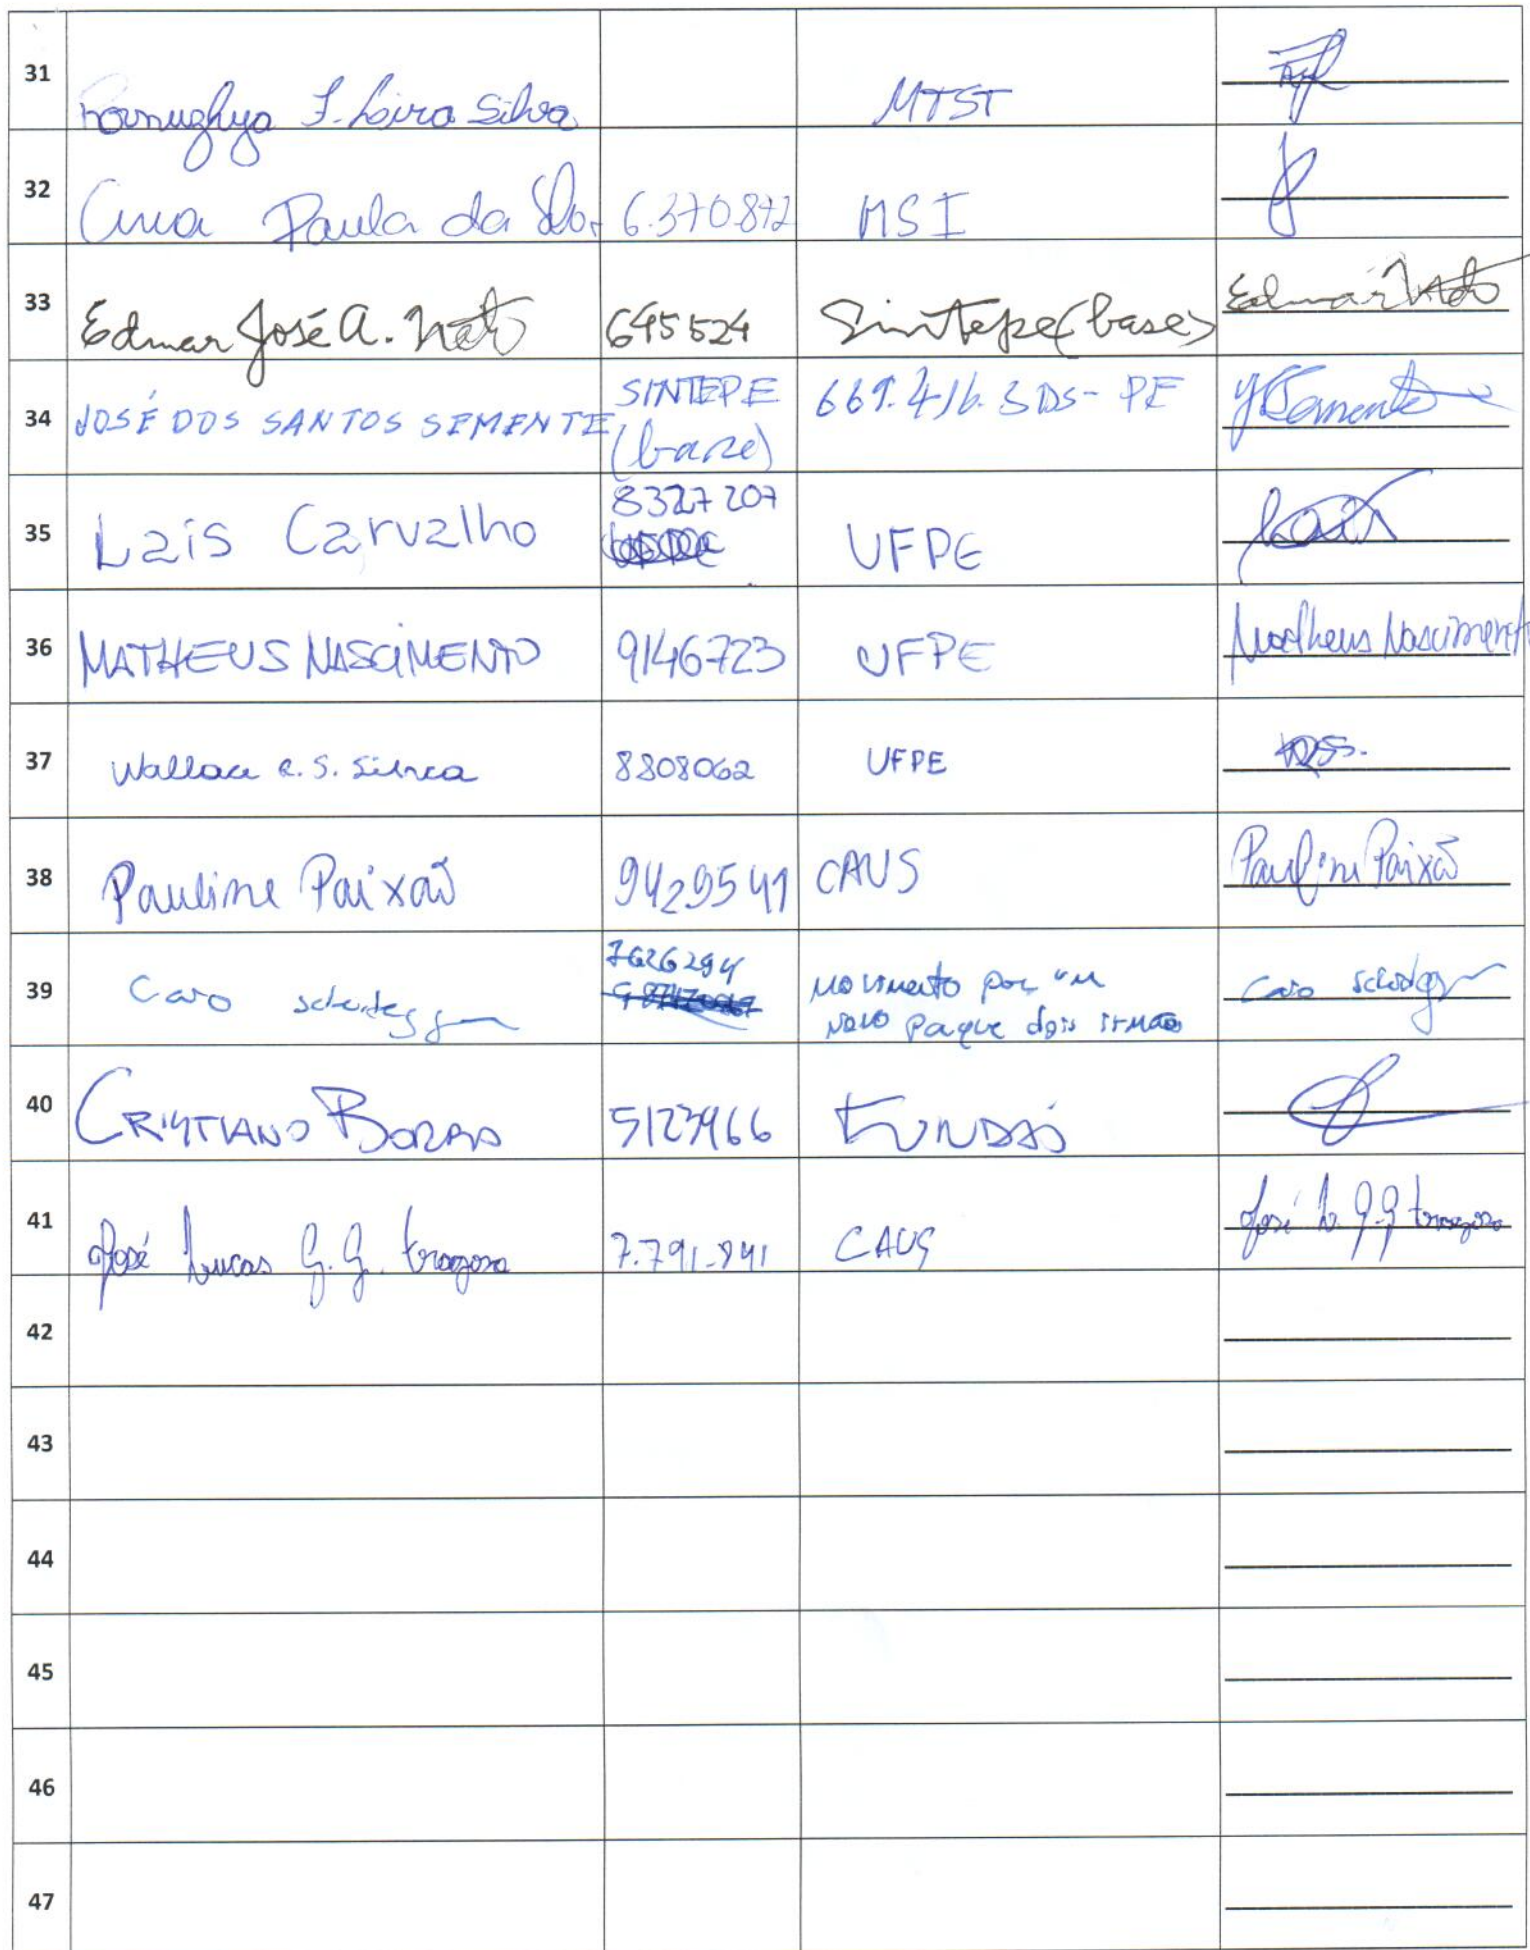 31 Silva MTST
32 Ana Paula da 6.370.872 MSI
33 Edmar José A. Neto 645524 Sintepe (base) Edmar Neto
34 JOSÉ DOS SANTOS SEMENTE SINTEPE 669.416.SDS-PE JSSemente
(base)
35 Lais Carvalho 8327207 UFPE Lais
36 MATHEUS NASCIMENTO 9146723 UFPE Matheus Nascimento
37 Wallace R. S. Silva 8808062 UFPE
38 Pauline Paixão 9429541 CAUS Pauline Paixão
39 Caio scheidegger 7626294 Movimento por um Caio scheidegger
novo parque dois irmãos
40 CRISTIANO BORBA FUNDAJ
41 José Lucas G. G. fragoso 7.791.841 CAUS José L. G. G fragoso
42
43
44
45
46
47